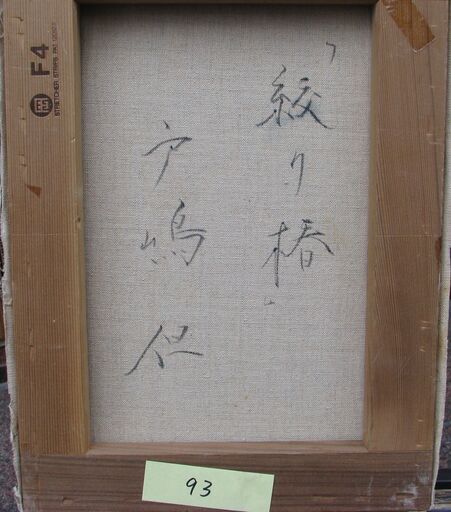 「絞り椿」
戸嶋但
F4
STRETCHER STRIPS
93